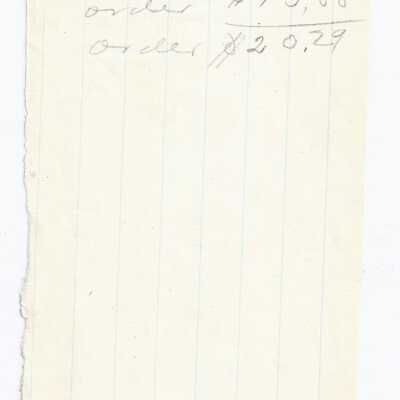 order
order $20.29